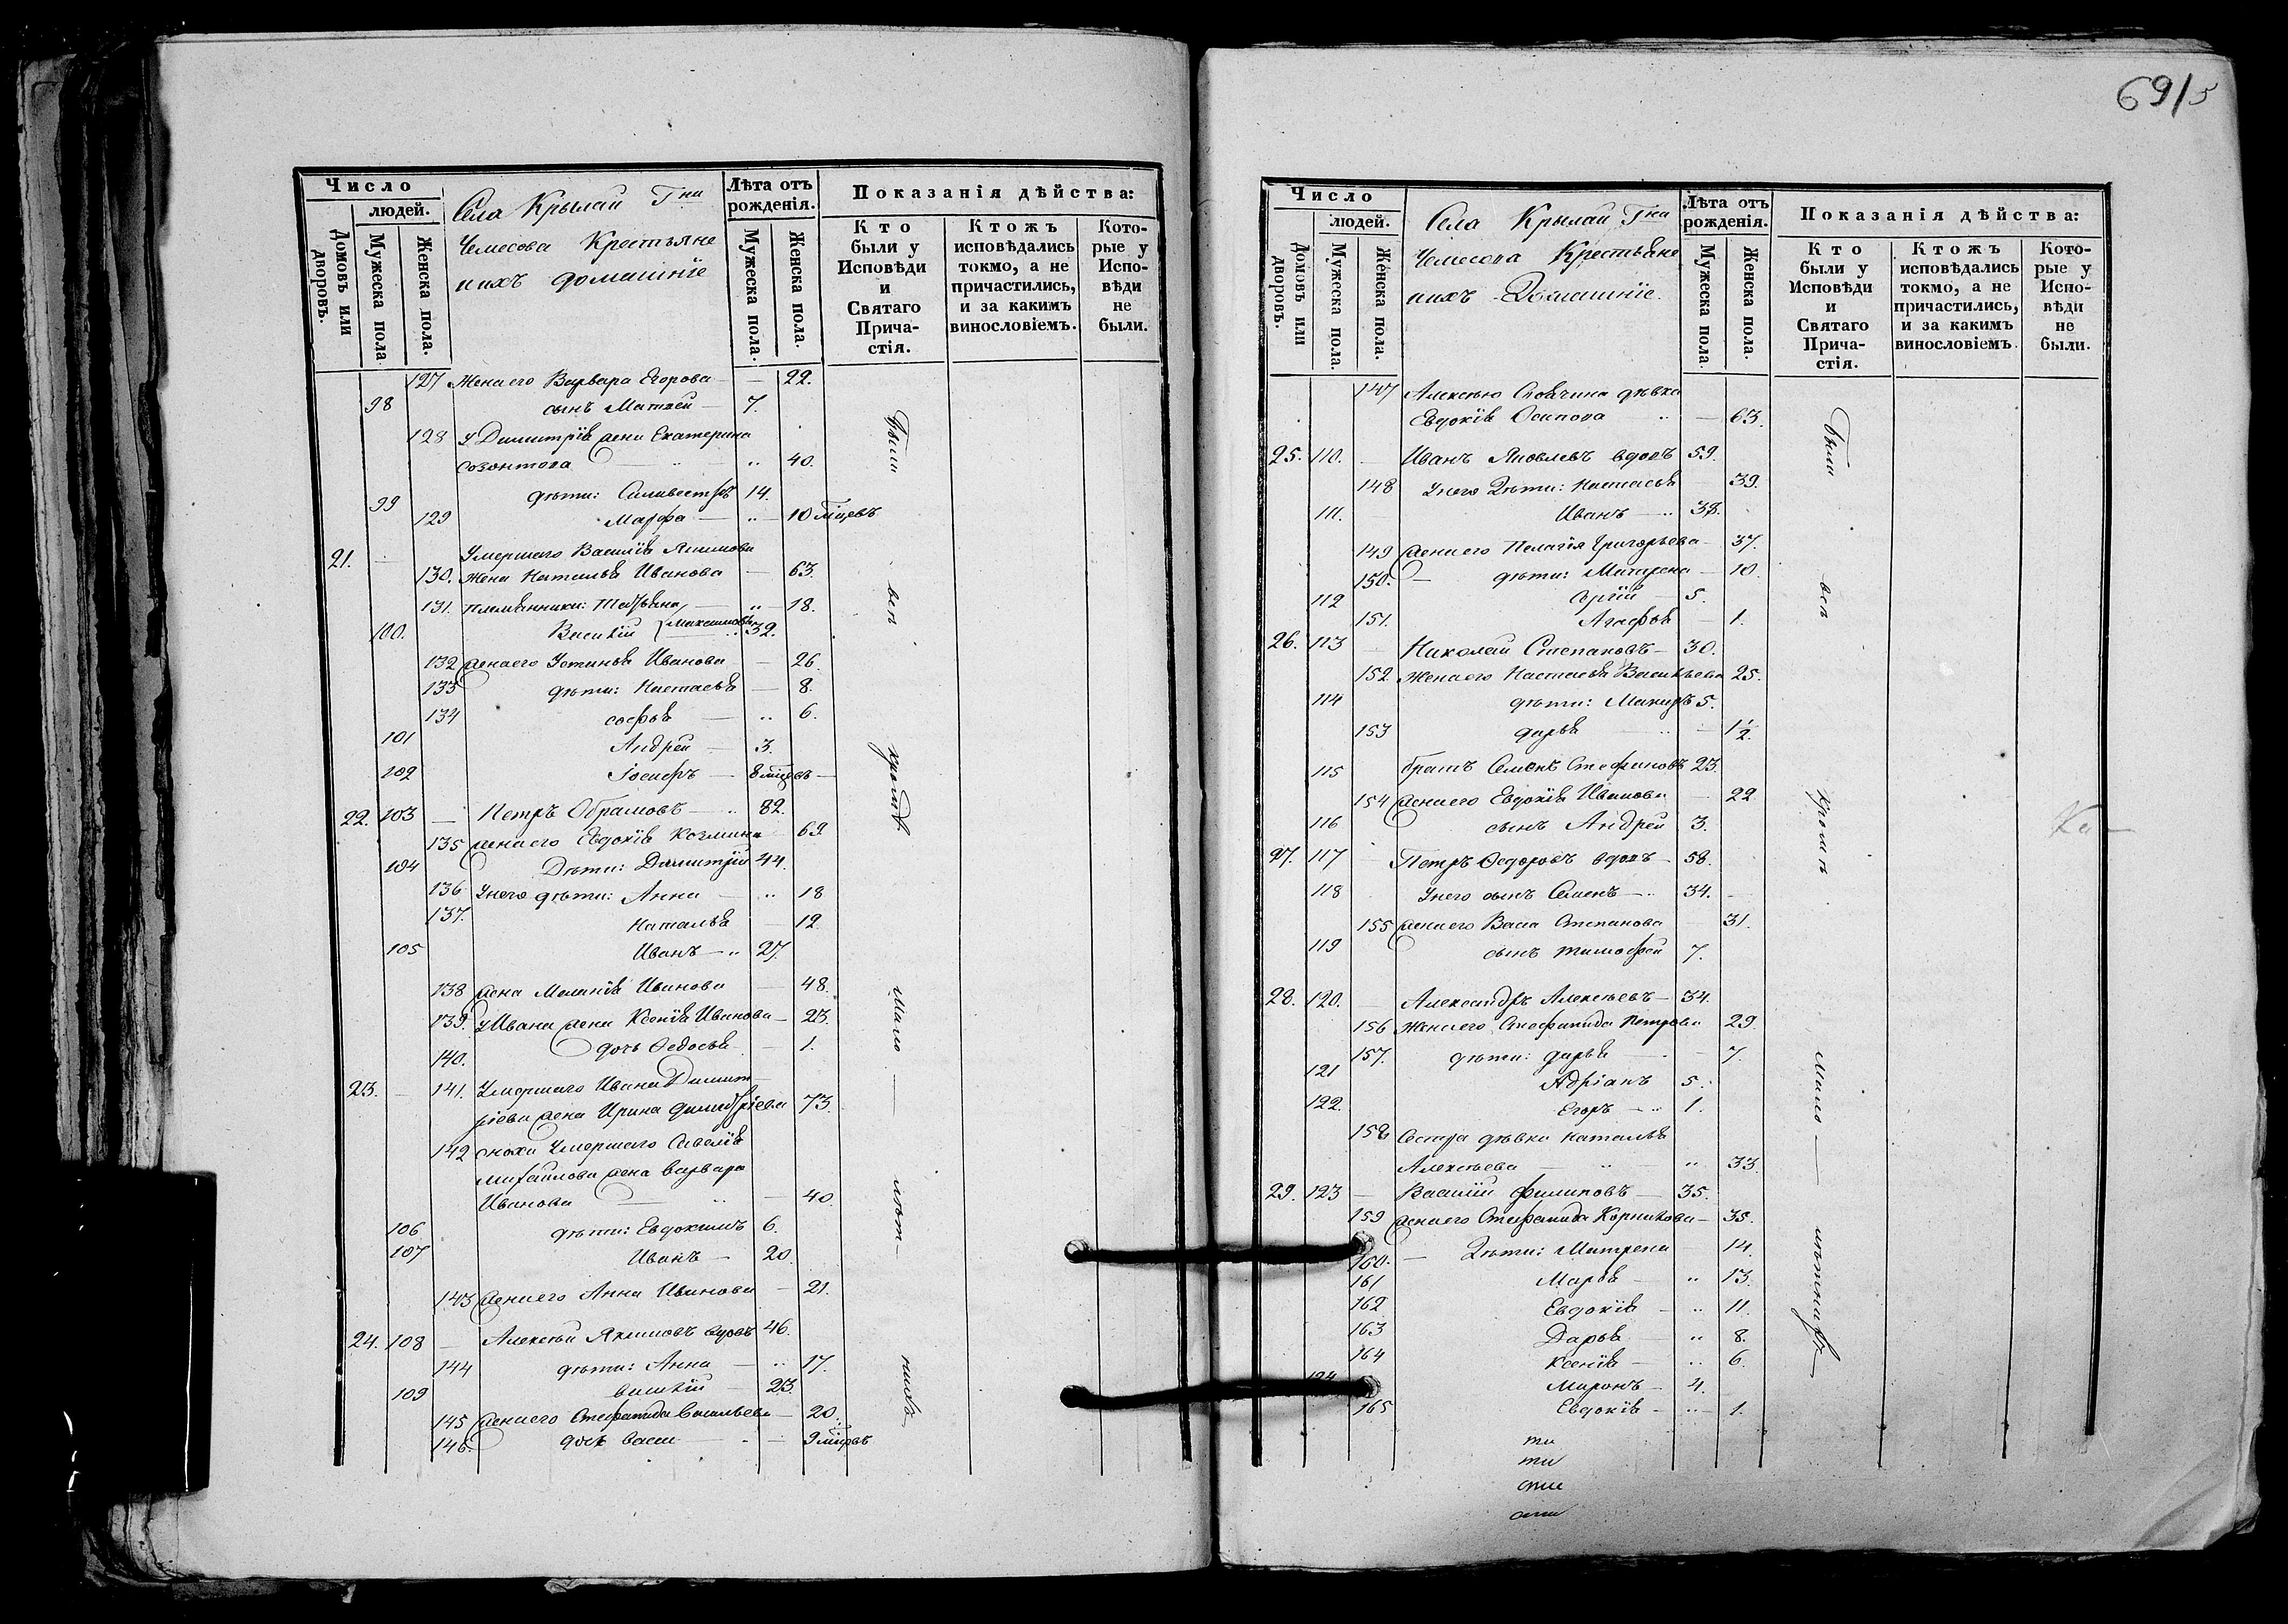 69/5
Число
людей.
Домовъ или дворовъ.
Мужеска пола
Женска пола.
Села Крылай Гна
Чемесова Крестьяне
и ихъ домашніе
Лѣта отъ рожденія.
Мужеска пола.
Женска пола.
Показанія дѣйства:
Кто были у Исповѣди и Святаго Причастія.
Ктожъ исповѣдались токмо, а не причастились, и за какимъ винословіемъ.
Которые у Исповѣди не были.
127 Жена его Варвара Егорова — 22.
98 сынъ Матвей — 7.
128 у Димитрія жена Екатерина
Созонтова 40.
99 дѣти: Силивестръ 14.
129 Марфа — 10 мцевъ
21. Умершаго Василія Якимова
130. жена Наталья Иванова — 63.
131. племянники: Татьяна 18.
100. Василій Максимовы 32.
132 жена его Устинья Иванова — 26.
133 дѣти: Настасья — 8.
134 Софья — 6.
101 Андрей — 3.
102 Іосифъ — 8 мцевъ —
22. 103 — Петръ Обрамовъ — 82.
135 жена его Евдокія Козмина 69
104 Дѣти: Димитрій 44.
136 У него дѣти: Анна — 18
137. Наталья — 12
105 Иванъ — 27.
138 жена Меланія Иванова — 48.
139. у Ивана жена Ксенія Иванова — 23.
140. дочь Федосья — 1.
23. — 141. Умершаго Ивана Димит-
ріева жена Ирина Димитріева 73.
142 сноха Умершаго Савелія
Михайлова жена Варвара
Иванова — 40.
106 дѣти: Евдокимъ 6.
107 Иванъ — 20.
143 жена его Анна Иванова — 21.
24. 108 — Алексѣй Якимовъ вдовъ 46.
144 дѣти: Анна — 17.
109 Василій — 23.
145 жена его Стефанида Васильева — 20.
146. дочь Васса — 9 мцевъ
Были всѣ кромѣ мало — лѣт-нихъ
Число
людей.
Домовъ или дворовъ.
Мужеска пола
Женска пола.
Села Крылай Гна
Чемесова Крестьяне
и ихъ Домашніе.
Лѣта отъ рожденія.
Мужеска пола.
Женска пола.
Показанія дѣйства:
Кто были у Исповѣди и Святаго Причастія.
Ктожъ исповѣдались токмо, а не причастились, и за какимъ винословіемъ.
Которые у Исповѣди не были.
147 Алексѣю дѣвка
Евдокія Осипова — 63.
25. 110. Иванъ Яковлевъ вдовъ 59.
148 У него Дѣти: Настасья 39.
111. Иванъ — 38.
149 жена его Пелагія Григорьева — 37.
150. — дѣти: Матрена — 10.
112 Сергій — 5.
151. Агафья — 1.
26. 113 Николай Степановъ — 30.
152. Жена его Настасья Васильева 25.
114 дѣти: Макаръ 5.
153 дарья — 1 1/2.
115 братъ Семенъ Стефановъ 23.
154 жена его Евдокія Иванова — 22
116 сынъ Андрей 3.
27. 117 Петръ Федоровъ вдовъ — 58.
118 У него сынъ Семенъ — 34.
155 жена его Васса Степанова 31.
119 сынъ Тимофей 7.
28. 120. — Александръ Алексѣевъ — 34.
156 Жена его Стефанида Петрова 29.
157. дѣти: дарья — 7.
121 Адріанъ 5.
122. Егоръ — 1.
158 Сестра дѣвка Наталья
Алексѣева — 33.
29. 123 — Василій Филиповъ — 35.
159 жена его Стефанида Корнилова — 35.
160. — Дѣти: Матрена 14.
161 Марья — 13.
162 Евдокія — 11.
163 Дарья — 8.
164 Ксенія — 6.
124 Миронъ — 4.
165 Евдокія — 1.
Были всѣ кромѣ мало — лѣтнихъ